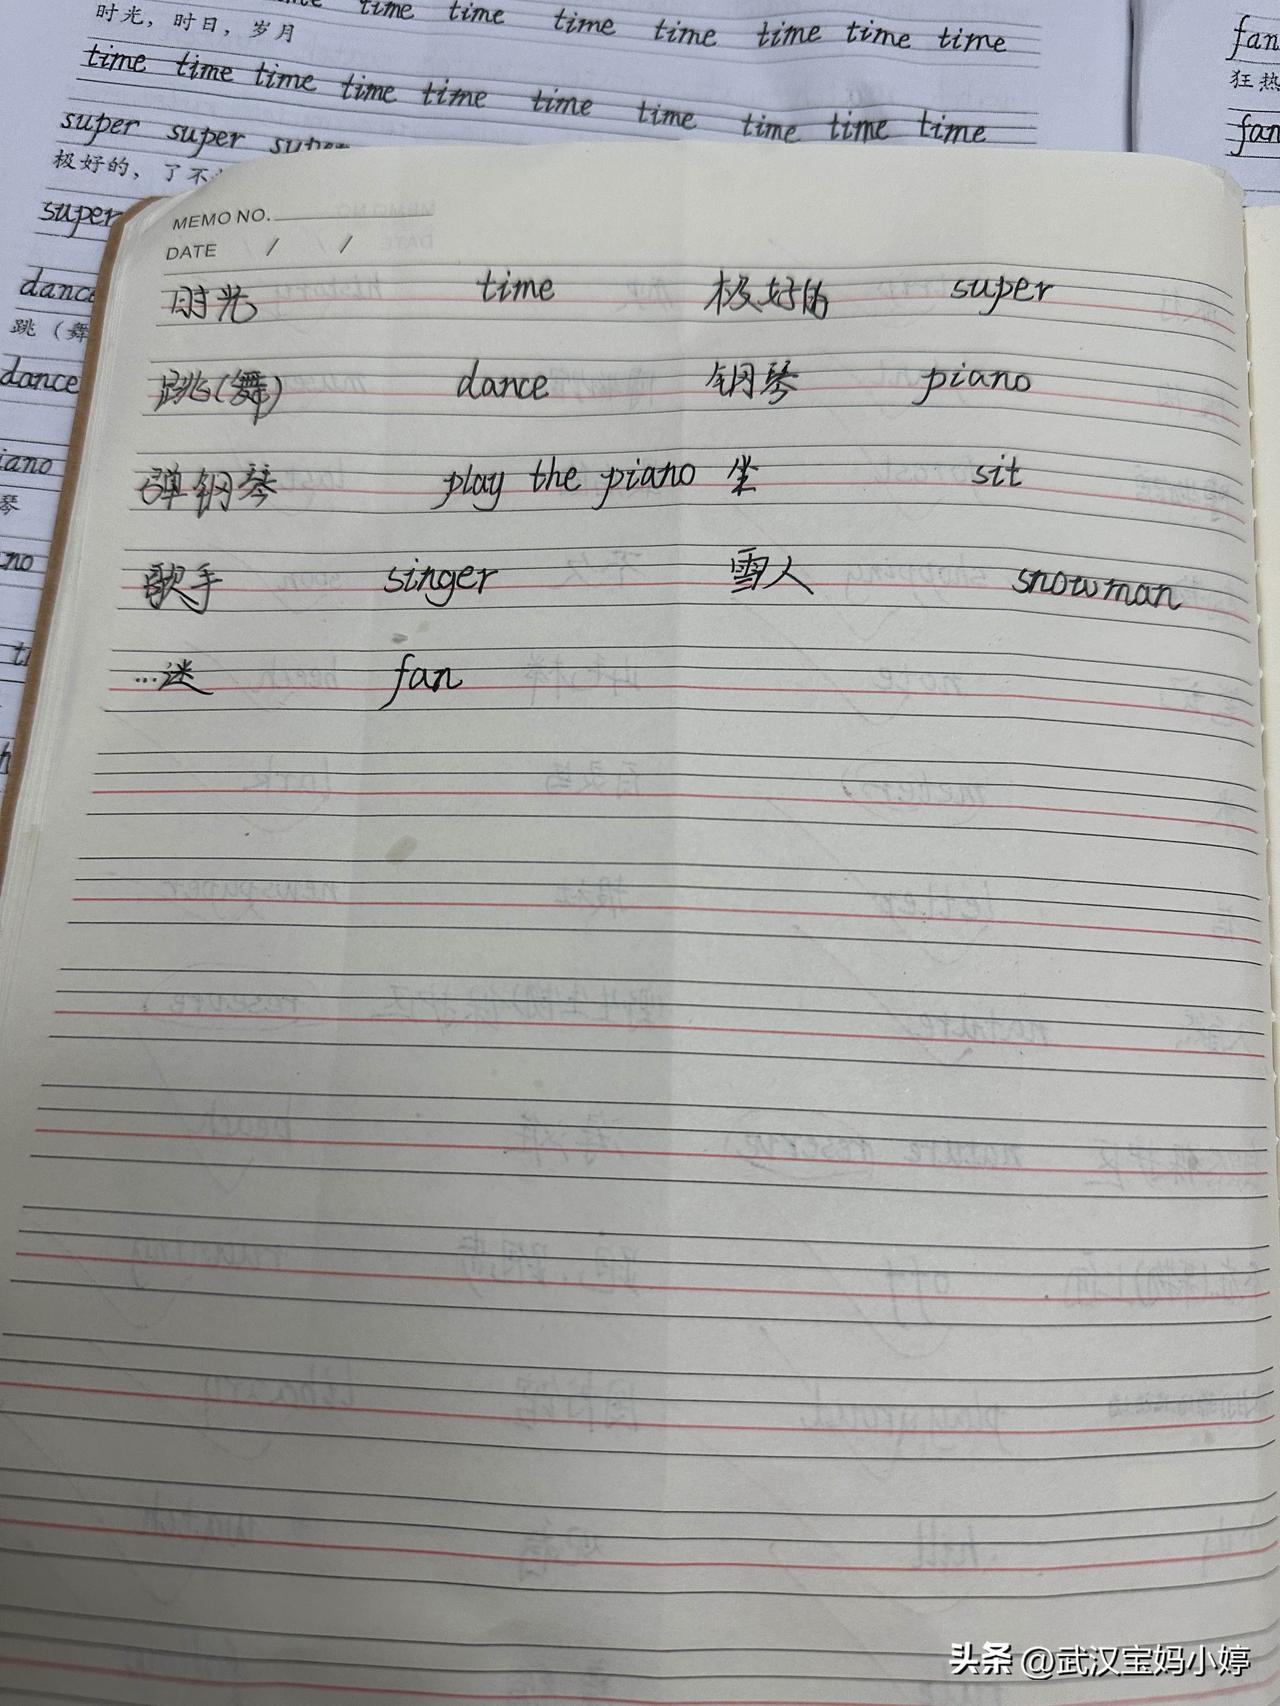 time time time time time time time
时光，时日，岁月
time time time time time time time time time time
super super super
极好的，了不
super
dance
跳（舞
dance
iano
琴
no
fan
狂热
fan
MEMO NO.
DATE / /
时光 time 极好的 super
跳(舞) dance 钢琴 piano
弹钢琴 play the piano 坐 sit
歌手 singer 雪人 snowman
…迷 fan
头条 @武汉宝妈小婷